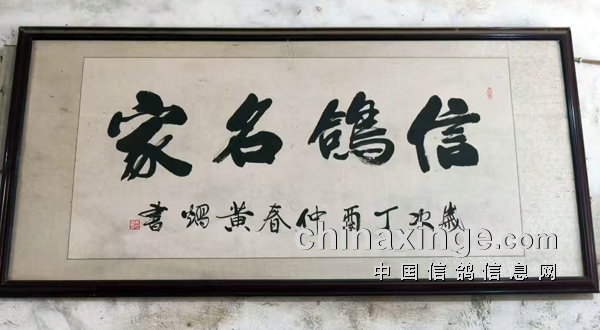 信鴿名家
歲次丁酉仲春黄書
chinaxinge.com
中国信鸽信息网